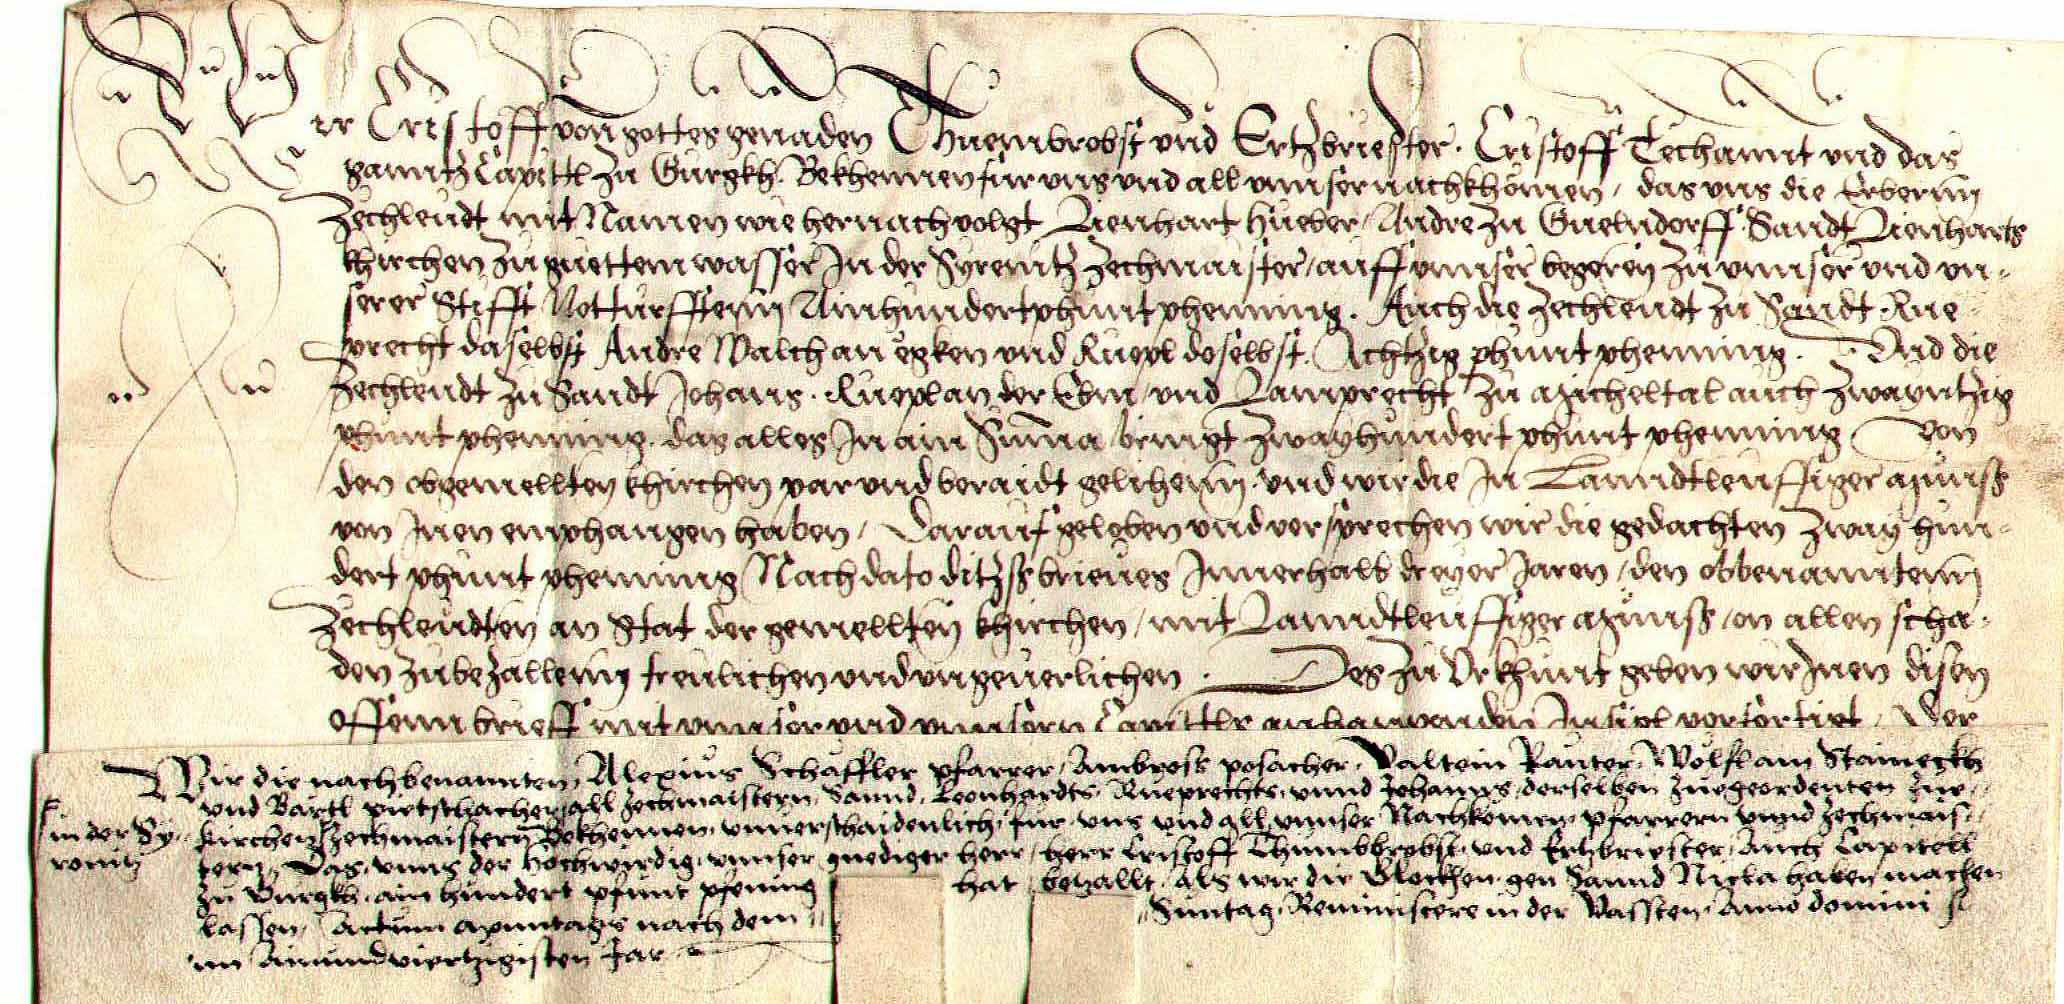 Wir Cristoff von gottes genaden Thuembrobst vnd Ertzbriester. Cristoff Techannt vnd das
ganntz Capittl zu Gurgkh. Bekhennen fur vns vnd all vnnser nachkhomen, das vns die Erberm
Zechleudt mit Namen wie hernach volgt Lienhart Hueber, Andre zu Gnelndorff Sandt Lienharts
khirchen zu guettem wasser In der Syrenitz Zechmaister, auff vnnser begeren zu vnnser vnd vn-
serer Stifft Notturfftenn Ainhundert phunt phenning. Auch die Zechleudt zu Sandt Rue-
precht daselbst Andre Walch an egken vnd Ruepl doselbst. Achtzig phunt phenning. Und die
Zechleudt zu Sandt Johans. Ruepl an der Ebm, vnd Lamprecht zu Micheltal auch Zwayntzig
phunt phenning. das alles In ain Summa bringt Zwayhundert phunt phenning Von
den obgemellten khirchen par vnd beraidt gelihenn. vnd wir die In Lanndtleuffiger Munss
von Inen emphangen haben, Darauf geloben vnd versprechen wir die gedachten Zway hun-
dert phunt phenning Nach dato ditzss brieues Innerhalb dreyer Jaren, den obbenanntenn
Zechleudten an Stat der gemellten khirchen, mit Lanndtleuffiger Munss, on allen scha-
den zubezallenn treulichen vnd vngeuerlichen. Des zu Vrkhunt geben wir Inen disen
offenn brieff mit vnnser vnd vnnsern Capittls anhangenden Insigl verfertigt. Der
Wir die nachbenannten, Alexius Schaffler pfarrer, Ambross posacher, Valtein Rauter, Wolf am Stainegkh
vnd Bartl all Zechmaistern, Sannd, Leonhardts, Rueprechts, vnnd Johanns, derselben zuegeordenten Zue-
in der Sy- kirchen Zechmaistern Bekhennen, vnnerschaidenlich, fur, vns vnd all, vnnser Nachkomen, pfarrern vnnd Zechmais-
renitz tern, Das, vnns der Hochwirdig, vnnser gnediger herr, herr Cristoff Thumbbrobst, vnd Ertzbriester, Auch Capitell
zu Gurgkh, ain hundert pfunt pfening hat bezallt, Als wir die Glockhen gen Sannd Nicla haben machen
lassen, Actum Monntags nach dem Suntag, Reminiscere in der Vassten, Anno domini
im Ainundviertzigisten Jar